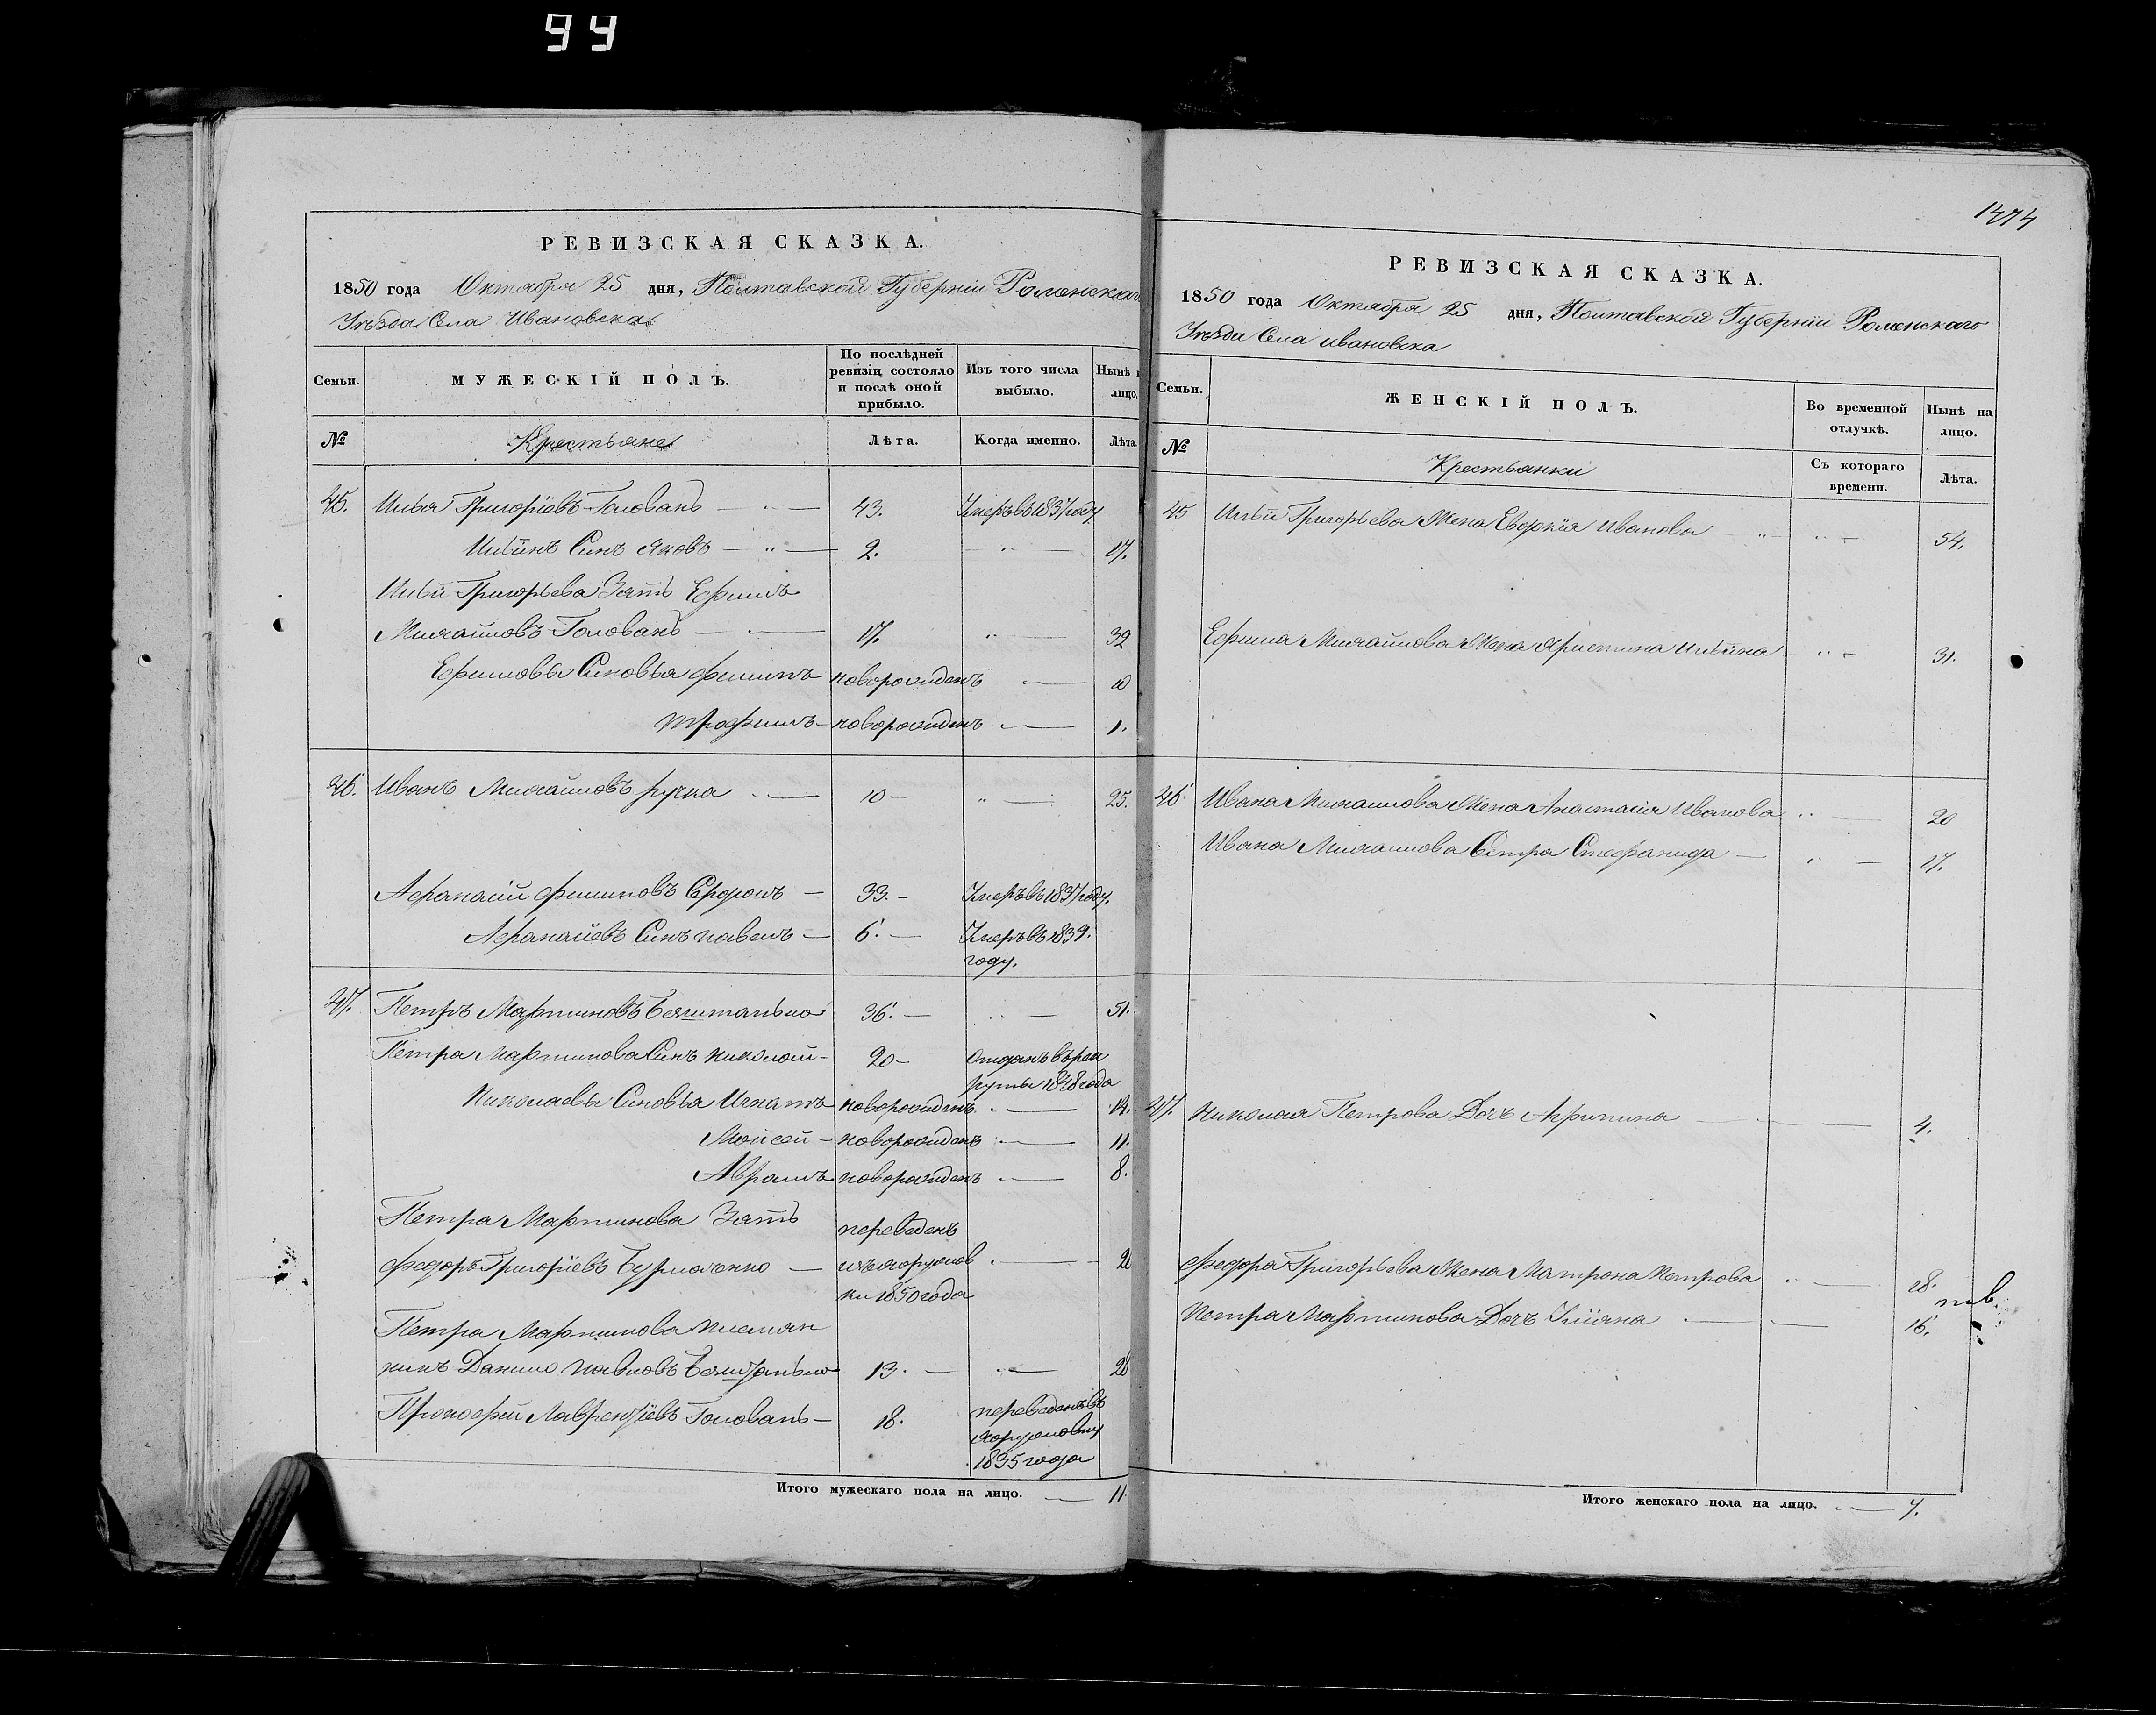 94
РЕВИЗСКАЯ СКАЗКА.
1850 года Октября 25 дня, Полтавской Губерніи Роменскаго
Уѣзда Села Ивановска
Семьи.
МУЖЕСКІЙ ПОЛЪ.
По послѣдней ревизіи состояло и послѣ оной прибыло.
Изъ того числа выбыло.
Нынѣ на лицо.
№
Крестьяне
Лѣта.
Когда именно.
Лѣта
45. Илья Григоріевъ Голованъ 43. Умеръ въ 1837 году
Ильинъ Синъ Яковъ 2. 17.
Ильи Григорьева Зять Ефимъ
Михайловъ Голованъ 17. 32
Ефимовы Синовья Филипъ новорожденъ 10
Трофимъ новорожденъ 1.
46. Иванъ Михайловъ Ручка 10 25.
Афанасій Филиповъ 33. Умеръ въ 1837 году.
Афанасіевъ Синъ Павелъ 6. Умеръ въ 1839.
году.
47. Петръ Мартиновъ 36. 51.
Петра Мартинова Синъ Николай 20 отданъ в рек
руты 1848 года
Николаевы Синовья Игнатъ новорожденъ 14.
Мойсей новорожденъ 11.
Аврамъ новорожденъ 8.
Петра Мартинова Зять переведенъ
Федоръ Григоріевъ Бурлаченко изъ 
ки 1850 года
Петра Мартинова племян
никъ Данило Павловъ 13. 28
Прокофій Лаврентіевъ Голованъ 18. переведенъ въ
1835 года
Итого мужескаго пола на лицо. 11.
1474
РЕВИЗСКАЯ СКАЗКА.
1850 года Октября 25 дня, Полтавской Губерніи Роменскаго
Уѣзда Села Ивановска
Семьи.
ЖЕНСКІЙ ПОЛЪ.
Во временной отлучкѣ.
Нынѣ на лицо.
№
Крестьянки
Съ котораго времени.
Лѣта.
45 Ильи Григорьева Жена Евфкія Иванова 54.
Ефима Михайлова Жена Христина Ильина 31.
46. Ивана Михайлова Жена Анастасія Иванова 20
Ивана Михайлова Сестра Стефанида 17.
47. Николая Петрова Дочь Афимина 4.
Федора Григорьева Жена Матрона Петрова 28.
Петра Мартинова Дочь Уліяна 16.
Итого женскаго пола на лицо. 7.